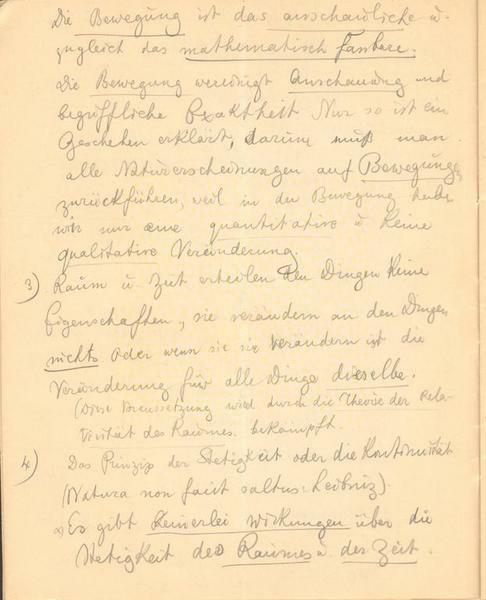 Die Bewegung ist das anschauliche u.
zugleich das mathematisch Fassbare.
Die Bewegung vereinigt Anschauung und
begriffliche Exaktheit Nur so ist ein
Geschehen erklärt, darum muß man
alle Naturerscheinungen auf Bewegung
zurückführen, weil in der Bewegung haben
wir nur eine quantitative u keine
qualitative Veränderung.
3) Raum u. Zeit erteilen den Dingen keine
Eigenschaften, sie verändern an den Dingen
nichts oder wenn sie sie verändern ist die
Veränderung für alle Dinge dieselbe.
(Diese Voraussetzung wird durch die Theorie der Rela-
tivität des Raumes bekämpft.
4) Das Prinzip der Stetigkeit oder die Kontinuität
(Natura non facit saltus: Leibniz).
Es gibt keinerlei Wirkungen über die
Stetigkeit des Raumes u. der Zeit.